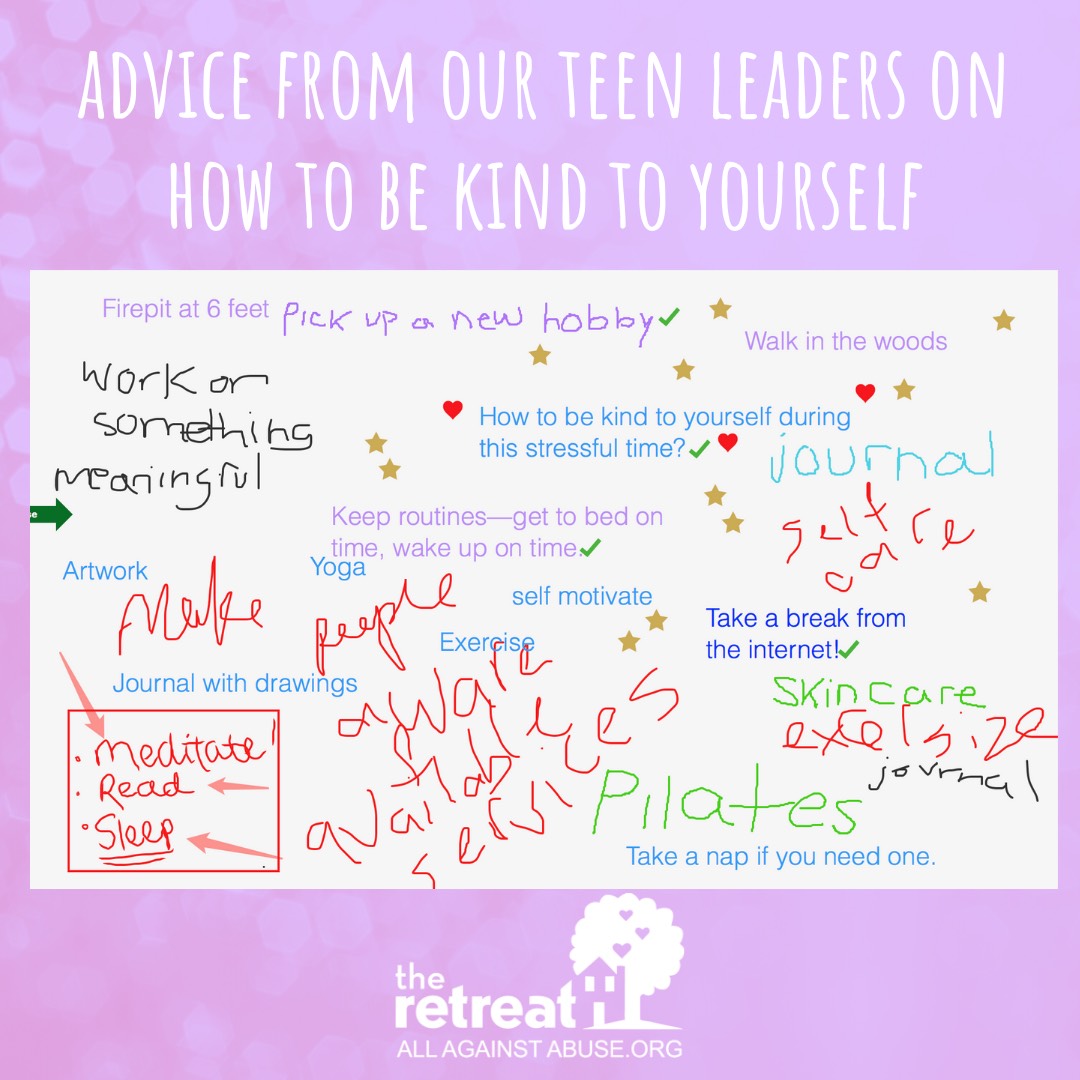 ADVICE FROM OUR TEEN LEADERS ON
HOW TO BE KIND TO YOURSELF
Firepit at 6 feet
Pick up a new hobby
Walk in the woods
work or
something
meaningful
How to be kind to yourself during
this stressful time?
journal
self care
Keep routines—get to bed on
time, wake up on time.
Artwork
Yoga
self motivate
Make
people
aware
available
services
Exercise
Take a break from
the internet!
Journal with drawings
skincare
exersize
journal
· meditate!
· Read
· Sleep
Pilates
Take a nap if you need one.
the
retreat
ALL AGAINST ABUSE.ORG